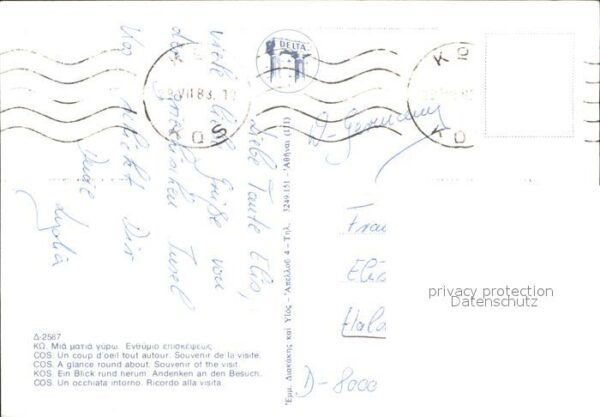 Liebe Tante Elis,
viele liebe Grüße von
der griechischen Insel
Kos schickt Dir
Deine
Lydia
DELTA
ΚΩΣ
KOS
VII 83
ΚΩΣ
KO
D-Germany
Frau
Elis
Hala
D-8000
privacy protection
Datenschutz
Δ-2567
ΚΩ. Μιά ματιά γύρω. Ενθύμιο επισκέψεως.
COS. Un coup d'oeil tout autour. Souvenir de la visite.
COS. A glance round about. Souvenir of the visit.
KOS. Ein Blick rund herum. Andenken an den Besuch.
COS. Un occhiata intorno. Ricordo alla visita.
Έμμ. Διακάκης καί Υίος - Άπελλού 4 - Τηλ. 3249.151 - Αθήναι (111)